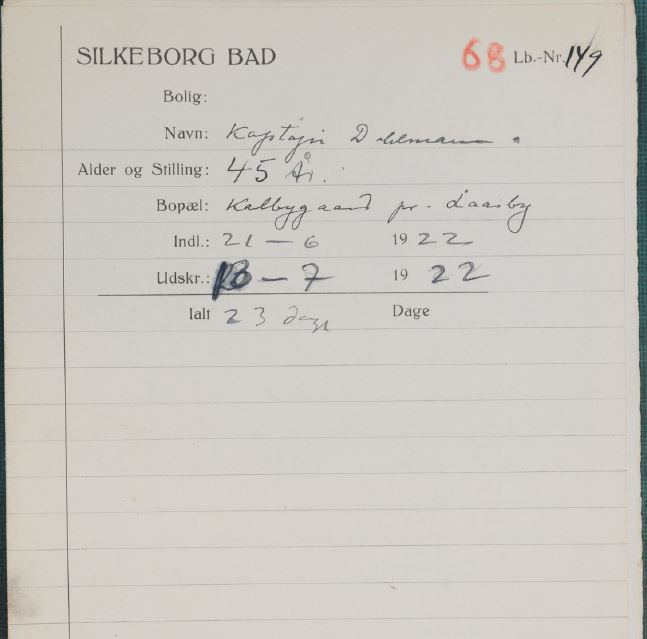 SILKEBORG BAD 68 Lb.-Nr. 149
Bolig:
Navn: Kaptajn
Alder og Stilling: 45 År.
Bopæl: Kalbygaard pr. Laasby
Indl.: 21 – 6 1922
Udskr.: 13 – 7 1922
Ialt 23 dage Dage